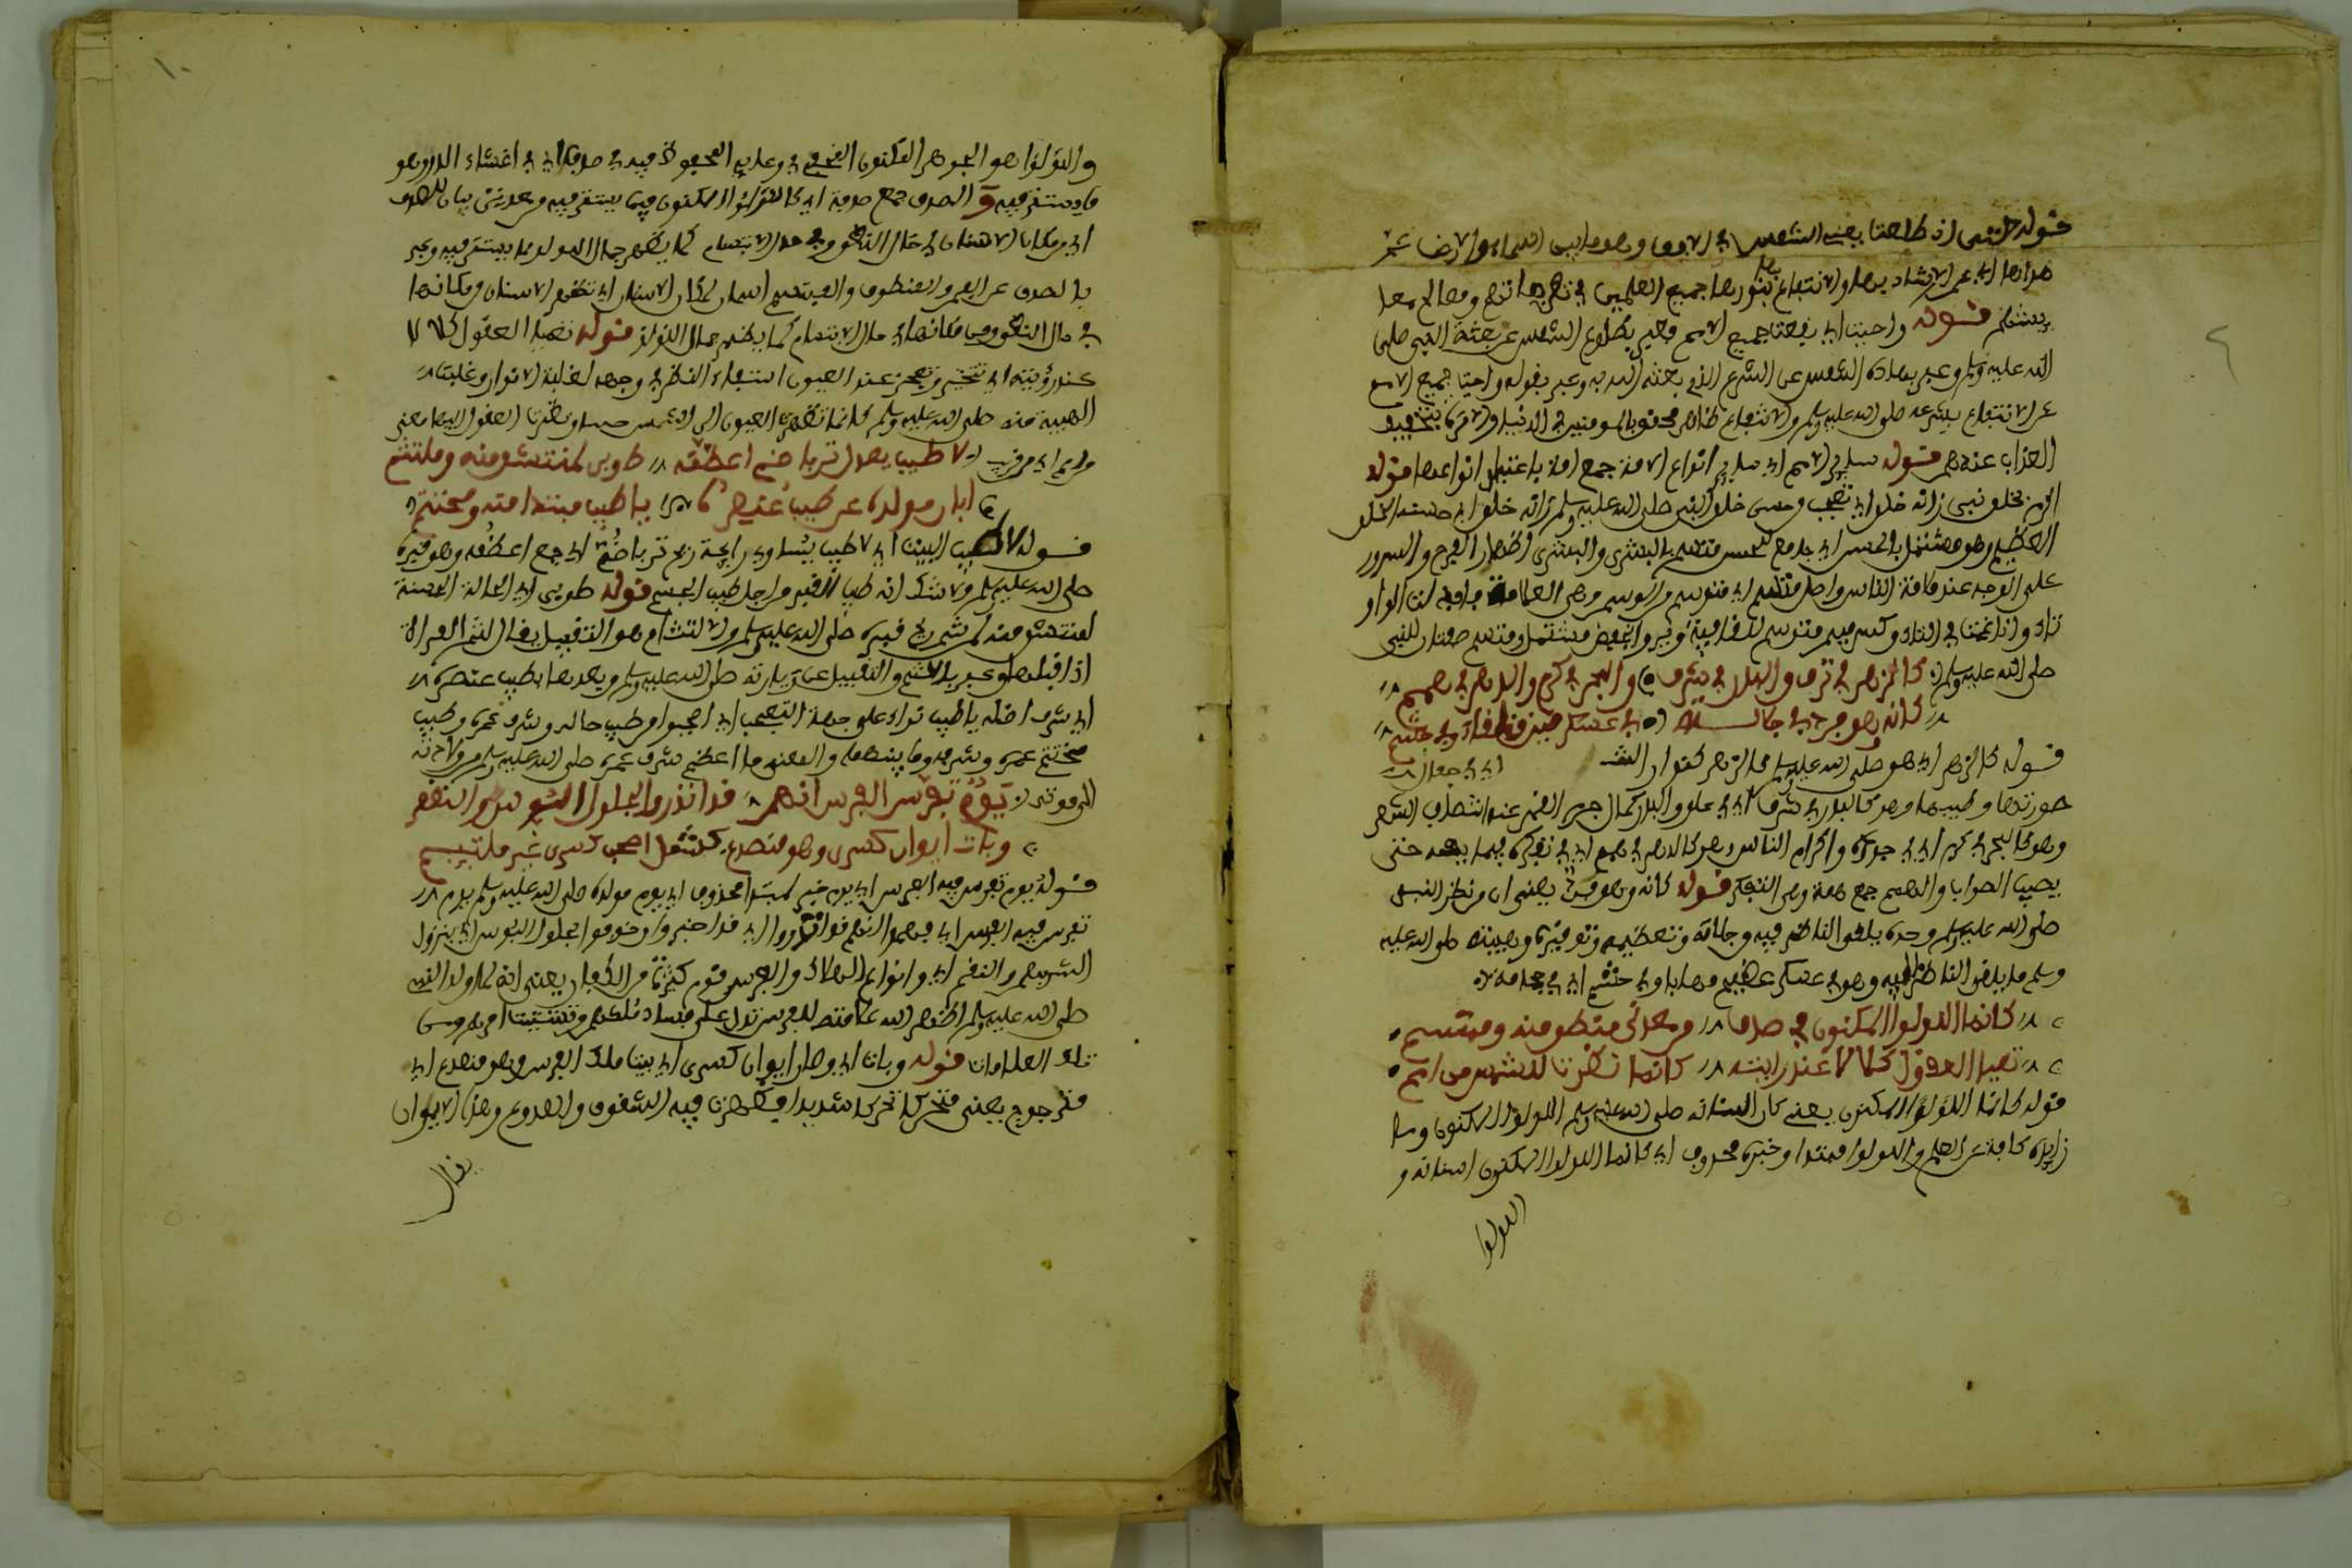 قوله حتى اذ طلعت يعني الشمس في الافق وهو مابين السماء والارض عم
هداها اي عم الارشاد بها والانتفاع بنورها جميع العلمين في
قوله واحيت اي نفعت جميع الامم فعبر بطلوع الشمس عن بعثة النبي صلى
الله عليه وسلم وعبر بهداه الشمس عن الشرع الذي بعثه الله به وعبر بقوله واحيت جميع الامم
عن الانتفاع بشرعه صلى الله عليه وسلم والانتفاع للمومنين في الدنيا والاخرة بتخفيف
العذاب عنهم قوله ساير الامم اي ساير انواع الامة جمع امة باعتبار انواعها قوله
اكرم بخلق نبي زانه خلق اي تعجب وحسن خلق النبي صلى الله عليه وسلم زانه خلق اي
العظيم وهو مشتمل بالحسن اي جامع للحسن متسم بالبشرى والبشرى اظهار الفرح والسرور
على الوجه عند ملاقاة الناس واصل متسم اي موتسم من الوسم وهي العلامة فابدلت الواو
تاء وادغمت في التاء
صلى الله عليه وسلم كالزهر في ترف والبدر في شرف والبحر في كرم والدهر في همم
كانه وهو فرد في جلالته في عسكر حين تلقاه وفي حشم
قوله كالزهر اي هو صلى الله عليه وسلم كالزهر كنوار
صورتها وطيبها وهو كالبدر في شرف اي في علو والبدر كمال جرم القمر عند انتصاف الشهر
وهو كالبحر في كرم اي في جوده واكرام الناس وهو كالدهر في همم اي في تفكره فيما يهمه حتى
يصيب الصواب والهمم جمع همة وهي التفكر قوله كانه وهو فرد يعني ان من نظر النبي
صلى الله عليه وسلم وحده يلقى الناظر فيه وجلالته وتعظيمه وتوقيره وهيبته صلى الله عليه
وسلم ما يلقى الناظر اليه وهو في عسكر عظيم وفي حشم اي في
كانما اللولو المكنون في صدف من معدني منطق منه ومبتسم
تعيا العقول كلالا عند رايته كانما نظرت للشمس من امم
قوله كانما اللولو المكنون يعني كان اسنانه صلى الله عليه وسلم اللولو المكنون وما
زايدة كافة عن العمل واللولو مبتدا وخبره محذوف اي كانما اللولو المكنون اسنانه و
اللولو
١٠
واللولو هو الجوهر المكنون
ما يستقر فيه والصدف جمع صدفة اي كاللولو المكنون فيما يستقر فيه من معدني بيان للصدف
اي من مكان الاسنان في حال النطق وفي حال الابتسام كما يظهر جمال اللولو مما يستقر فيه وعبر
بالصدف عن الفم والمنطق والمبتسم
في حال النطق ومن مكانها في حال الابتسام كما يظهر جمال اللولو قوله تعيا العقول كلالا
عند رؤيته اي تتحير وتعجز عند العيون استيفاء النظر في وجهه لغلبة الانوار وغلبت
الهيبة منه صلى الله عليه وسلم كانما نظرت العيون الى الشمس
من امم اي من قريب لا طيب يعدل تربا ضم اعظمه طوبى لمنتشق منه وملتثم
ابان مولده عن طيب عنصره يا طيب مبتدا منه ومختتم
قوله لا طيب البيت اي لا طيب يساوي رايحة تربا ضم اي جمع اعظمه وهو قبره
صلى الله عليه وسلم ولا شك انه طيب القبر من اجل طيب الجسم قوله طوبى اي الحالة الحسنة
لمنتشق منه لمن شم ريح قبره صلى الله عليه وسلم والالتثام هو التقبيل يقال لثم المراة
اذا قبلها وعبر بالشم والتقبيل عن زيارته صلى الله عليه وسلم
اي شرف اصله يا طيب نداء على جهة التعجب اي اعجبوا من طيب حاله وشرف عمره وطيب
مختتم عمره وشرفه وما بينهما والمعنى ما اعظم شرف عمره صلى الله عليه وسلم من ولادته
الى موته يوم تفرس فيه الفرس انهم قد انذروا بحلول البؤس والنقم
وبات ايوان كسرى وهو منصدع كشمل اصحاب كسرى غير ملتيم
قوله يوم تفرس فيه الفرس اي يوم خبر لمبتدا محذوف اي يوم مولده صلى الله عليه وسلم يوم
تفرس فيه الفرس اي فهموا انهم قد انذروا اي قد اخبروا وخوفوا بحلول البؤس اي بنزول
الشر بهم والنقم اي وانواع الهلاك والفرس قوم كثيرة من الكفار يعني انه لما ولد النبي
صلى الله عليه وسلم اظهر الله علامته للفرس تدل على فساد ملكهم وتشتيت امرهم ومن
تلك العلامات قوله وبات اي وصار ايوان كسرى اي بيت ملك الفرس وهو منصدع اي
مترجرج يعني متحركا تحركا شديدا فظهرت فيه الشقوق والصدوع وهذا الايوان
يقال